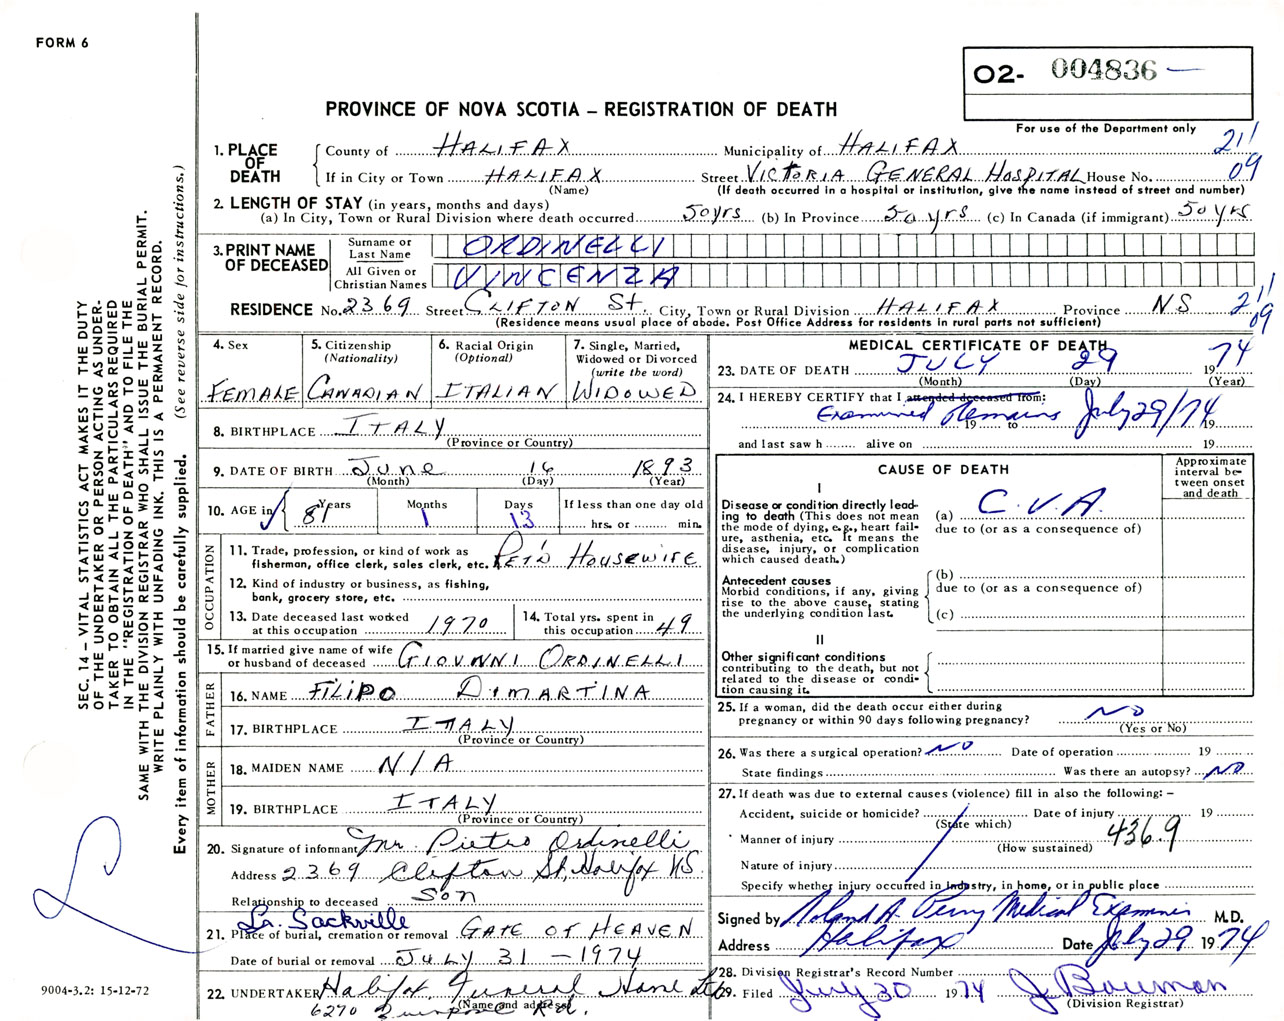 FORM 6
O2- 004836 —
PROVINCE OF NOVA SCOTIA – REGISTRATION OF DEATH
For use of the Department only
1. PLACE OF DEATH County of HALIFAX Municipality of HALIFAX 211
If in City or Town HALIFAX Street VICTORIA GENERAL HOSPITAL House No. 09
(Name) (If death occurred in a hospital or institution, give the name instead of street and number)
2. LENGTH OF STAY (in years, months and days)
(a) In City, Town or Rural Division where death occurred 50 yrs (b) In Province 50 yrs (c) In Canada (if immigrant) 50 yrs
3. PRINT NAME OF DECEASED Surname or Last Name ORDINELLI
All Given or Christian Names VINCENZA
RESIDENCE No. 2369 Street CLIFTON St. City, Town or Rural Division HALIFAX Province NS 211
(Residence means usual place of abode. Post Office Address for residents in rural parts not sufficient) 09
4. Sex FEMALE
5. Citizenship (Nationality) CANADIAN
6. Racial Origin (Optional) ITALIAN
7. Single, Married, Widowed or Divorced (write the word) WIDOWED
8. BIRTHPLACE ITALY
(Province or Country)
9. DATE OF BIRTH June 16 1893
(Month) (Day) (Year)
10. AGE in Years 81 Months 1 Days 13 If less than one day old
hrs. or min.
OCCUPATION
11. Trade, profession, or kind of work as fisherman, office clerk, sales clerk, etc. RET'D HOUSEWIFE
12. Kind of industry or business, as fishing, bank, grocery store, etc.
13. Date deceased last worked at this occupation 1970
14. Total yrs. spent in this occupation 49
15. If married give name of wife or husband of deceased GIOVNNI ORDINELLI
FATHER
16. NAME FILIPO DIMARTINA
17. BIRTHPLACE ITALY
(Province or Country)
MOTHER
18. MAIDEN NAME N/A
19. BIRTHPLACE ITALY
(Province or Country)
20. Signature of informant Mr. Pietro Ordinelli
Address 2369 Clifton St, Halifax NS
Relationship to deceased Son
Lr. Sackville
21. Place of burial, cremation or removal GATE OF HEAVEN
Date of burial or removal JULY 31 – 1974
22. UNDERTAKER Halifax Funeral Home Ltd
(Name and address)
6270 Rd.
MEDICAL CERTIFICATE OF DEATH
23. DATE OF DEATH JULY 29 1974
(Month) (Day) (Year)
24. I HEREBY CERTIFY that I attended deceased from:
Examined Remains July 29/74
19 to 19
and last saw h alive on 19
CAUSE OF DEATH
Approximate interval between onset and death
I
Disease or condition directly leading to death (This does not mean the mode of dying, e.g., heart failure, asthenia, etc. It means the disease, injury, or complication which caused death.)
(a) C.V.A.
due to (or as a consequence of)
Antecedent causes
Morbid conditions, if any, giving rise to the above cause, stating the underlying condition last.
(b)
due to (or as a consequence of)
(c)
II
Other significant conditions
contributing to the death, but not related to the disease or condition causing it.
25. If a woman, did the death occur either during pregnancy or within 90 days following pregnancy? NO
(Yes or No)
26. Was there a surgical operation? NO Date of operation 19
State findings Was there an autopsy? NO
27. If death was due to external causes (violence) fill in also the following: –
Accident, suicide or homicide? Date of injury 19
(State which)
Manner of injury 436.9
(How sustained)
Nature of injury
Specify whether injury occurred in Industry, in home, or in public place
Signed by Roland A. Perry Medical Examiner M.D.
Address Halifax Date July 29 1974
28. Division Registrar's Record Number
29. Filed July 30 1974 J. Bowman
(Division Registrar)
SEC. 14 – VITAL STATISTICS ACT MAKES IT THE DUTY
OF THE UNDERTAKER OR PERSON ACTING AS UNDER-
TAKER TO OBTAIN ALL THE PARTICULARS REQUIRED
IN THE "REGISTRATION OF DEATH" AND TO FILE THE
SAME WITH THE DIVISION REGISTRAR WHO SHALL ISSUE THE BURIAL PERMIT.
WRITE PLAINLY WITH UNFADING INK. THIS IS A PERMANENT RECORD.
Every item of information should be carefully supplied. (See reverse side for instructions.)
9004-3.2: 15-12-72